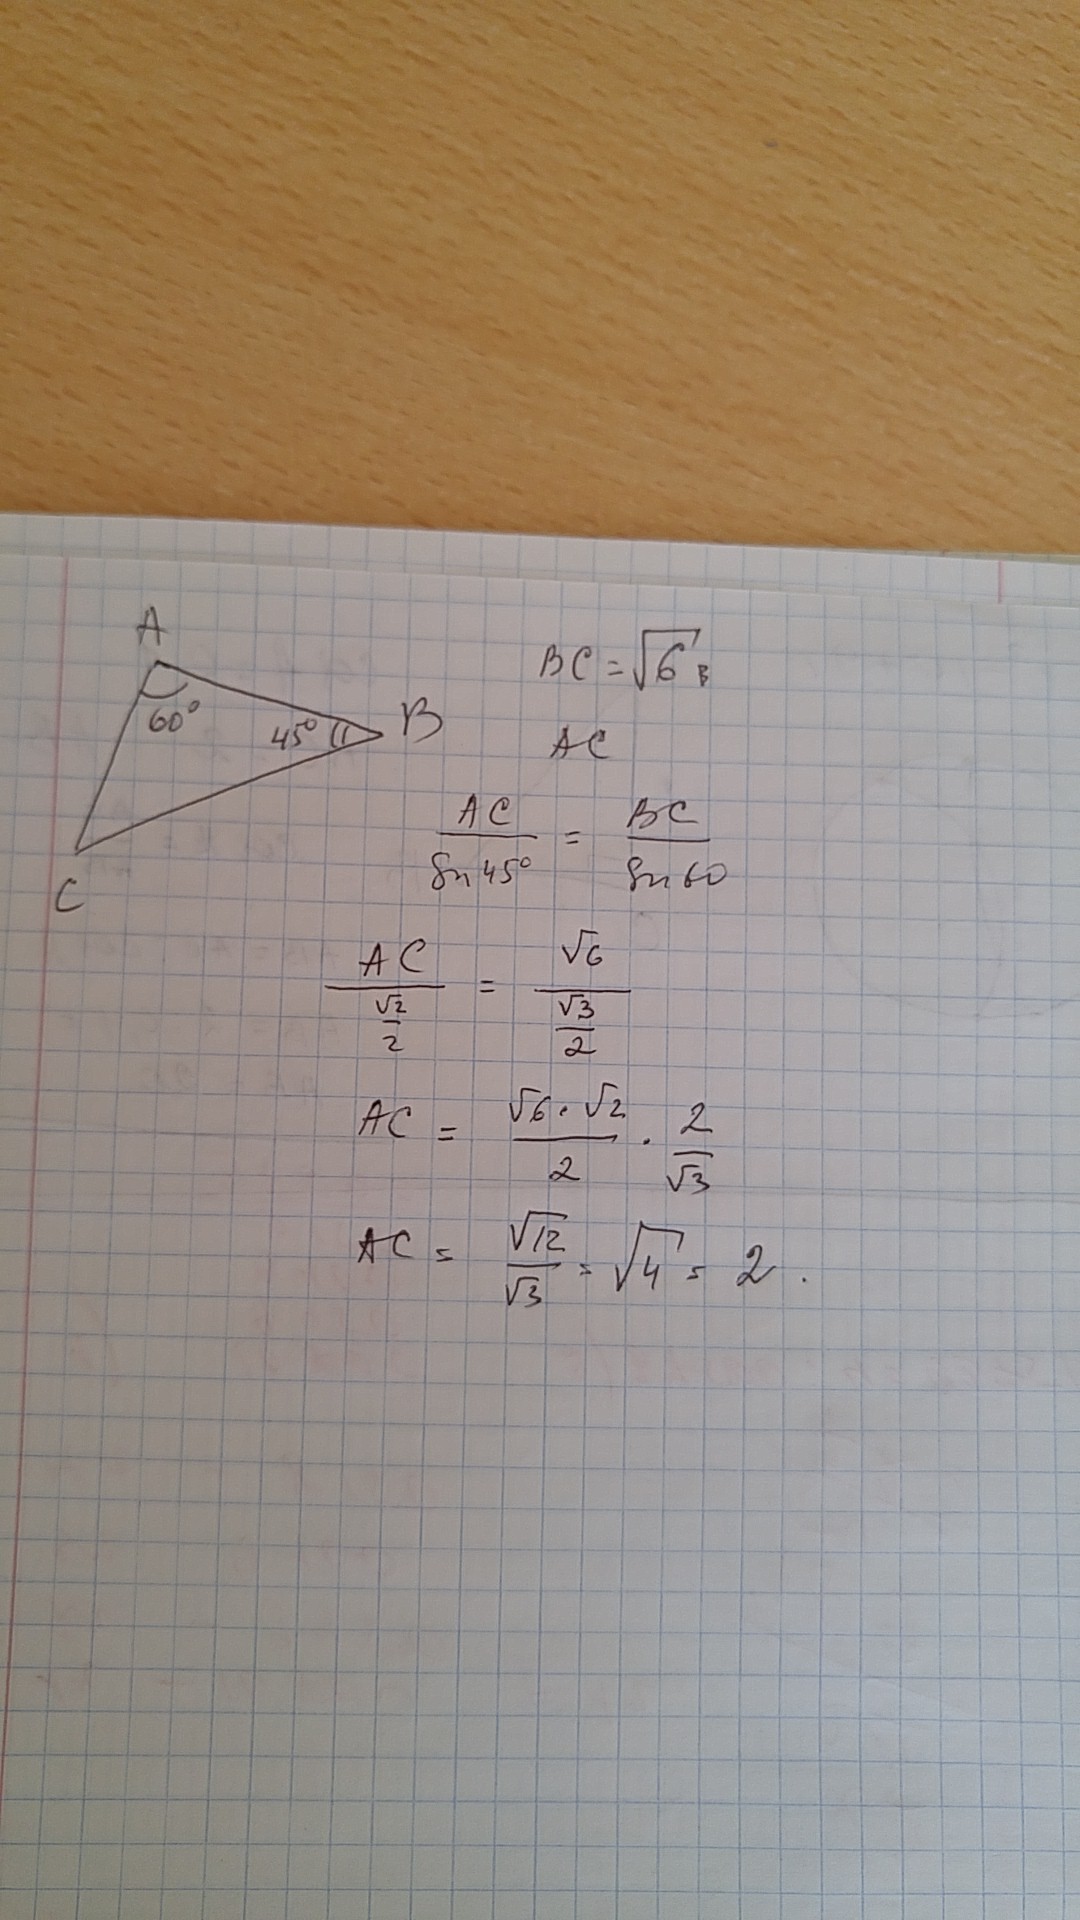 A
60°
45°
B
C
BC = √6
AC
AC / sin 45° = BC / sin 60
AC / (√2/2) = √6 / (√3/2)
AC = (√6 · √2) / 2 · 2 / √3
AC = √12 / √3 = √4 = 2.